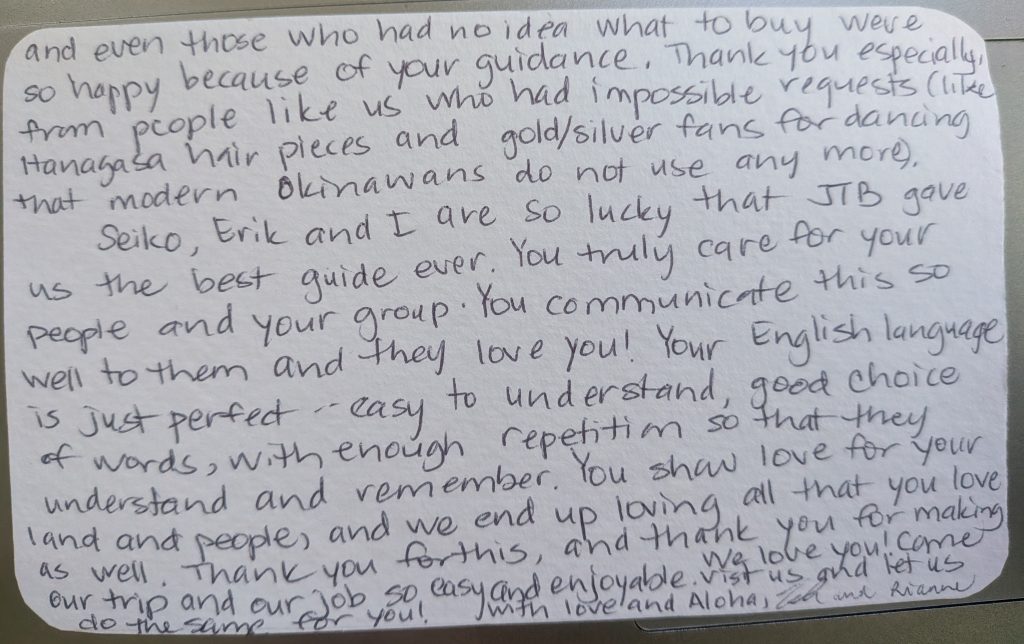 and even those who had no idea what to buy were
so happy because of your guidance. Thank you especially,
from people like us who had impossible requests (like
Hanagasa hair pieces and gold/silver fans for dancing
that modern Okinawans do not use any more).
Seiko, Erik and I are so lucky that JTB gave
us the best guide ever. You truly care for your
people and your group. You communicate this so
well to them and they love you! Your English language
is just perfect -- easy to understand, good choice
of words, with enough repetition so that they
understand and remember. You show love for your
land and people, and we end up loving all that you love
as well. Thank you for this, and thank you for making
our trip and our job so easy and enjoyable. We love you! Come
vist us and let us
do the same for you! With love and Aloha, and Rianne